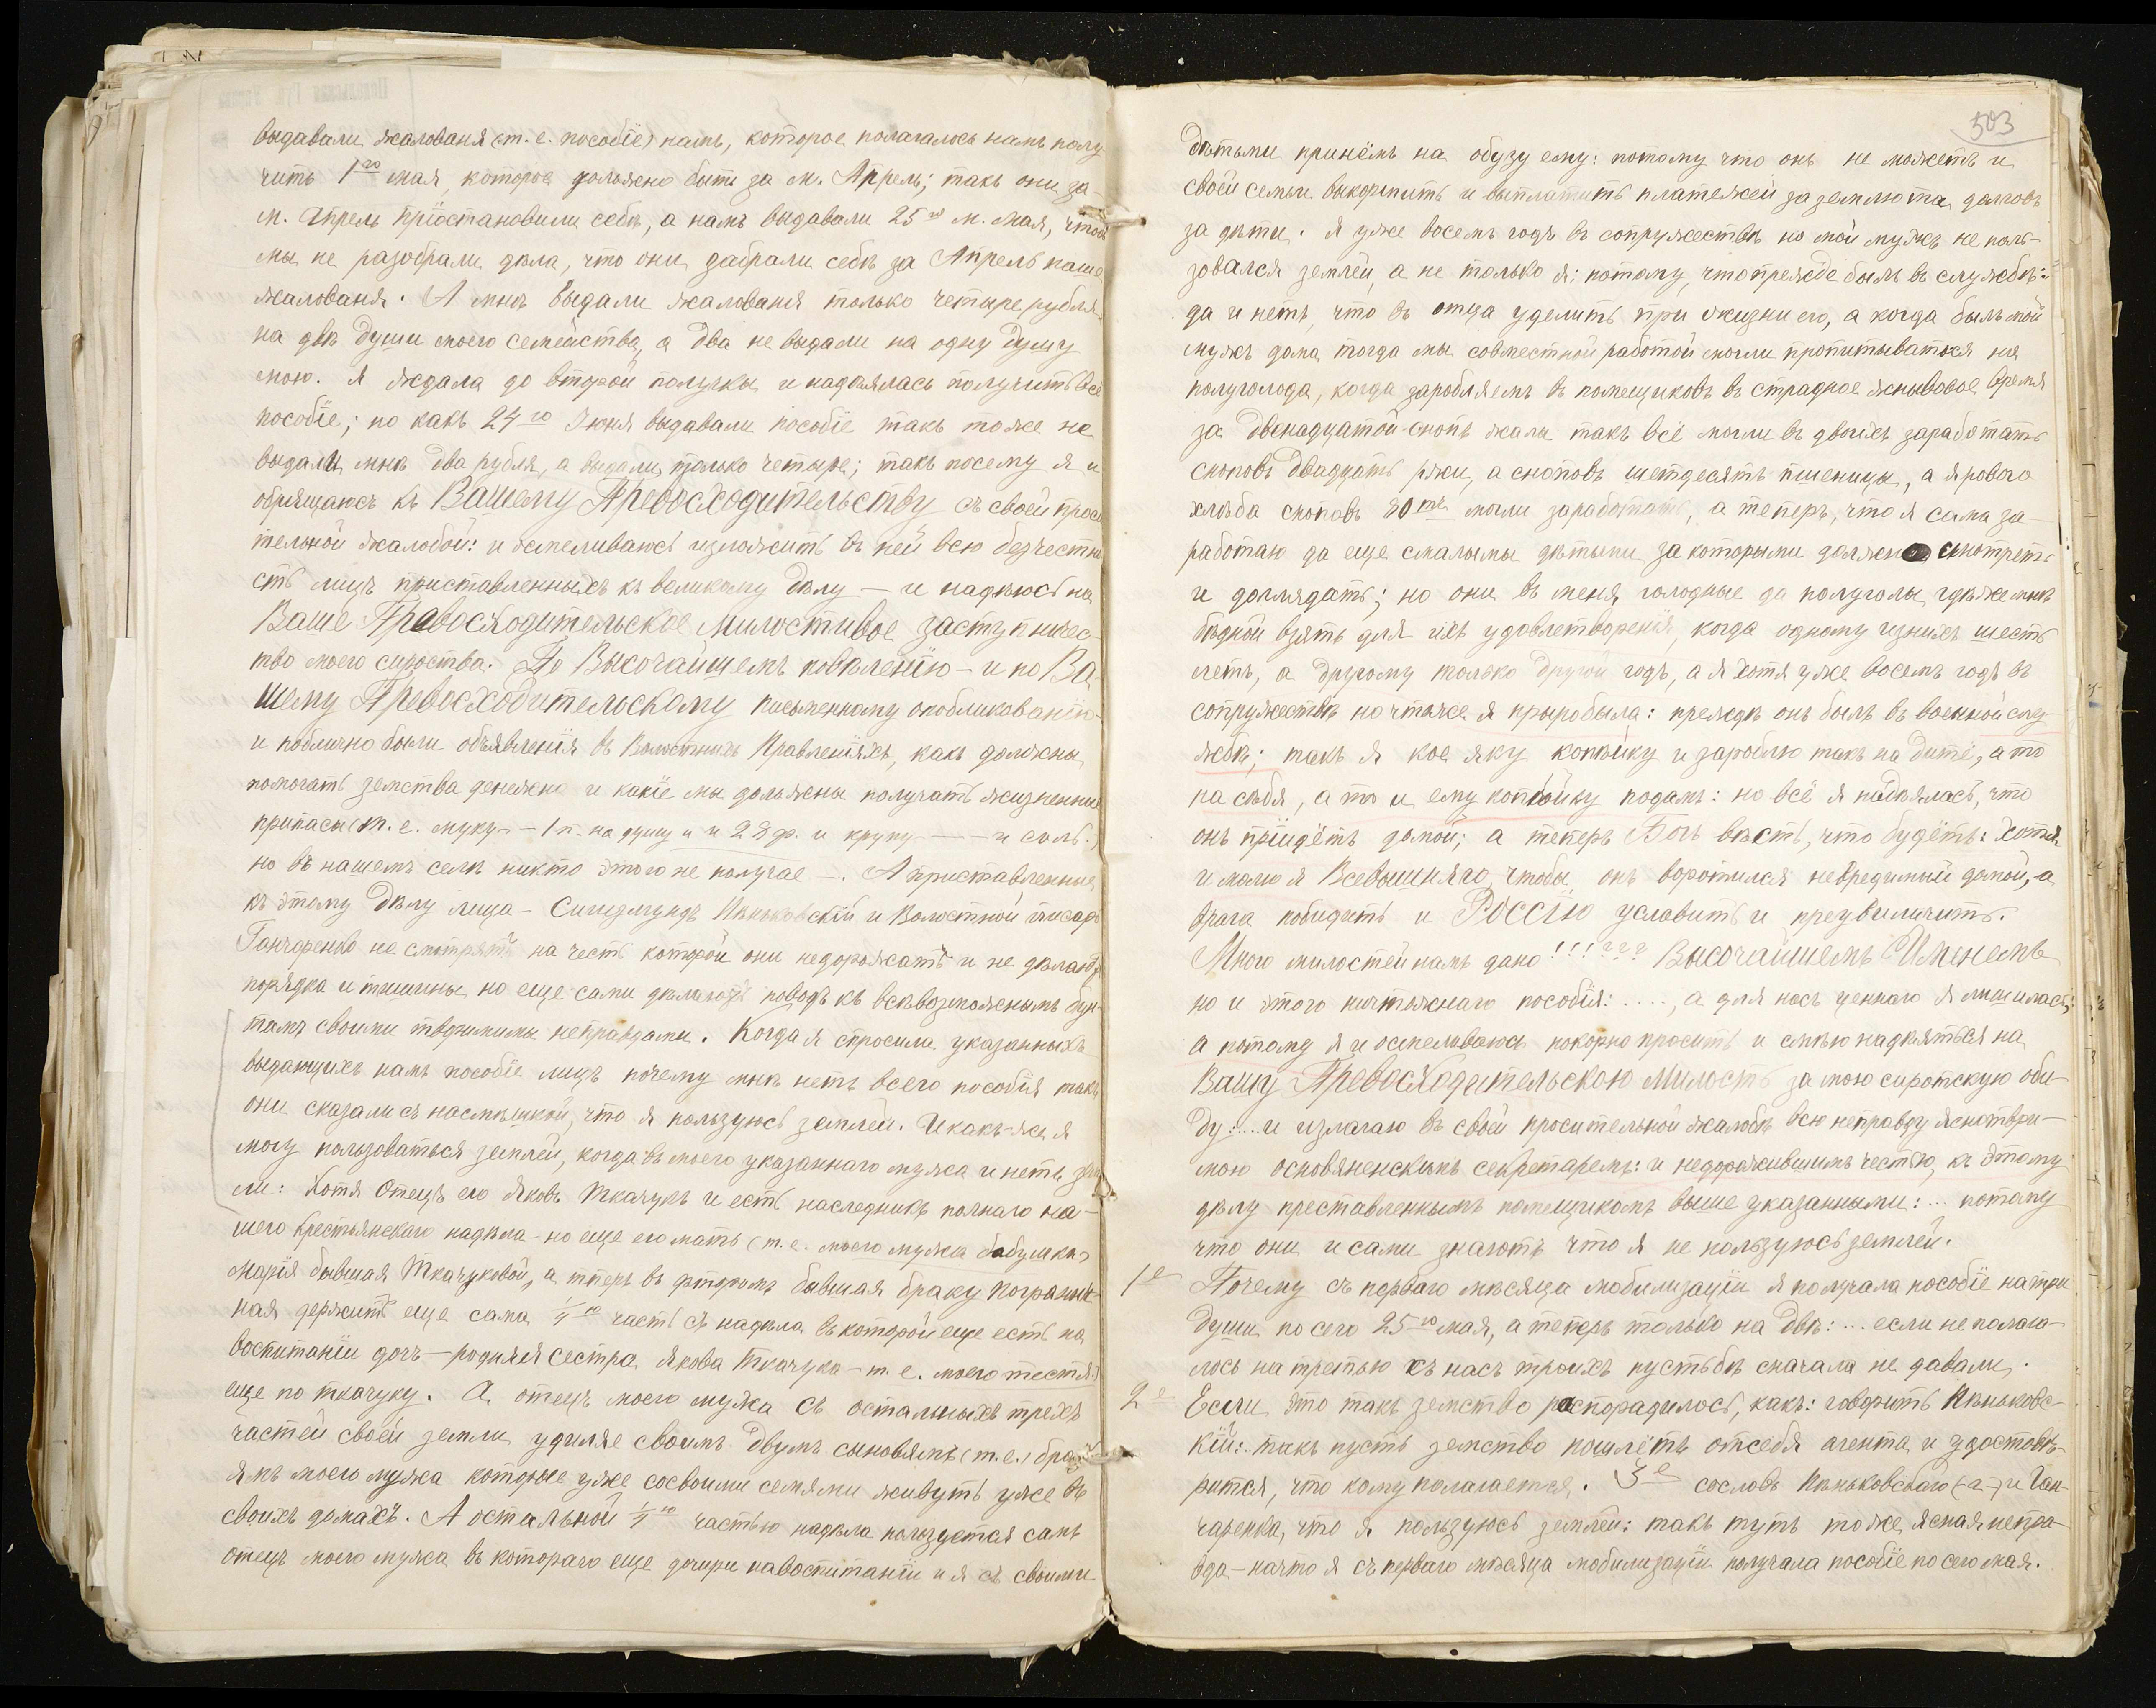 выдавали жалованя (т. е. пособіе) намъ, которое полагалось намъ полу
чить 1го мая, которое должно быть за м. Апрель; такъ они за
м. Апрель пріостановили себѣ, а намъ выдавали 25го м. мая, чтобъ
мы не разобрали дѣла, что они забрали себѣ за Апрель наше
жалованя. А мнѣ выдали жалованя только четыре рубля
на двѣ души моего семейства, а два не выдали на одну душу
мою. Я ждала до второй получки и надѣялась получить всё
пособіе; но какъ 24го Іюня выдавали пособіе такъ тоже не
выдали мнѣ два рубля, а выдали только четыре; такъ посему я и
обращаюсь къ Вашему Превосходительству съ своей проси
тельной жалобой: и осмеливаюсь изложить въ ней всю безчестно
сть лицъ приставленныхъ къ великому дѣлу — и надѣюсь на
Ваше Превосходительское милостивое заступничес-
тво моего сироства. По Высочайшемъ повѣленію — и по Ва-
шему Превосходительскому письменному опобликованію
и поблично были объявленія въ Волостныхъ Правленіяхъ, какъ должны
помогать земства денежно и какіе мы должены получать жизненные
припасы (т. е. муку — 1 п. на душу и 28 ф. и крупу — и соль.)
но въ нашемъ селѣ никто этого не получае —. А приставленные
къ этому дѣлу лица — Сигизмундъ Паньковскій и Волостной писарь
Ганчаренко не смотрятъ на честь которой они недорожатъ и не дѣлаютъ
порядка и тишины но еще сами дѣлаютъ поводъ къ всѣвозможнымъ бун-
тамъ своими творимыми неправдами. Когда я спросила указанныхъ
выдающихъ намъ пособіе лицъ почему мнѣ нетъ всего пособія такъ
они сказали съ насмѣшкой, что я пользуюсь землей. И какъ-же я
могу пользоваться землей, когда въ моего указаннаго мужа и нетъ зем
ли: Хотя Отецъ его Яковъ Ткачукъ и есть наследникъ полнаго на-
шего крестьянскаго надѣла — но еще его мать (т. е. моего мужа бабушка)
Марія бывшая Ткачуковой, а теперь въ второмъ бывшая браку Погранич-
ная держитъ еще сама 1/4ю часть съ надѣла въ которой еще есть на
воспитаніи дочь — родная сестра Якова Ткачука — т. е. моего тестя)
еще по ткачуку. А отецъ моего мужа съ остальныхъ трехъ
частей своей земли удиляе своимъ двумъ сыновямъ (т. е.) брат
ямъ моего мужа которые уже сосвоими семями живутъ уже въ
своихъ домахъ. А остальной 1/4ю частью надѣла пользуется самъ
отецъ моего мужа въ котораго еще дочери навоспитаніи и я съ своими
503
дѣтьми принёмъ на обузу ему: потому что онъ не можетъ и
своей семьи выкормить и выплатить платежей за землю та долговъ
за дѣти. Я уже восемъ годъ въ сопружествѣ но мой мужъ не поль-
зовался землей, а не только я: потому, что прежде былъ въ службѣ:
да и нетъ, что въ отца уделить при жизни его, а когда былъ мой
мужъ дома тогда мы совместной работой могли пропитыватося на
полуголода, когда заробляемъ въ помещиковъ въ страдное жнывовое время
за двенадцатой снопъ жали такъ всё могли въ двоихъ заработать
сноповъ двадцать ржи, а сноповъ шетдесятъ пшеницы, а ярового
хлѣба сноповъ 80тъ могли заработать, а теперь, что я сама за-
работаю да еще смалымы дѣтьми за которыми должно смотреть
и доглядать; но они въ меня голодные да полуголы, гдѣ же мнѣ
бѣдной взять для ихъ удовлетворенія, когда одному изнихъ шесть
летъ, а другому только другой годъ, а я хотя уже восемъ годъ въ
сопружествѣ но чтоже я прыробыла: преждѣ онъ былъ въ военной слу
жбѣ; такъ я кое яку копѣйку и зароблю такъ на дитё, а то
на сѣбя, а то и ему копѣйку подамъ: но всё я надѣялась, что
онъ пріидётъ домой; а теперь Богъ вѣсть, что будётъ: хотя
и молю я Всевышняго, чтобы онъ воротился невредимый домой, а
врага победить и Россію уславить и преувиличить.
Много милостей намъ дано!!!??? Высочайшемъ Именемъ
но и этого ничтожнаго пособія: ...., а для насъ ценнаго я лишилась;
а потому я и осмеливаюсь покорно просить и смѣю надѣяться на
Вашу Превосходительскою милость за мою сиротскую оби-
ду: ... и излагаю въ свой просительной жалобѣ всю неправду яснотвори-
мою основяненскимъ секретаремъ: и недорожившимъ честью, къ этому
дѣлу преставленнымъ помещикомъ выше указанными: ... потому
что они и сами знаютъ что я не пользуюсь землей.
1е Почему съ перваго мѣсяца мобилизаціи я получала пособіе на три
души по сего 25го мая, а теперь только на двѣ: ... если не полага-
лось на третью съ насъ троихъ пустьбѣ сначала не давали.
2е Если это такъ земство роспорадилось, какъ: говоритъ Паньковс-
кій: такъ пусть земство пошлётъ отсебя агента и удостовѣ-
рится, что кому полагается. 3е сословъ Паньковского (-а-) и Ган-
чаренка, что я пользуюсь землей: такъ тутъ тоже ясная непра-
вда — начто я съ перваго мѣсяца мобилизаціи получала пособіе по сего мая.